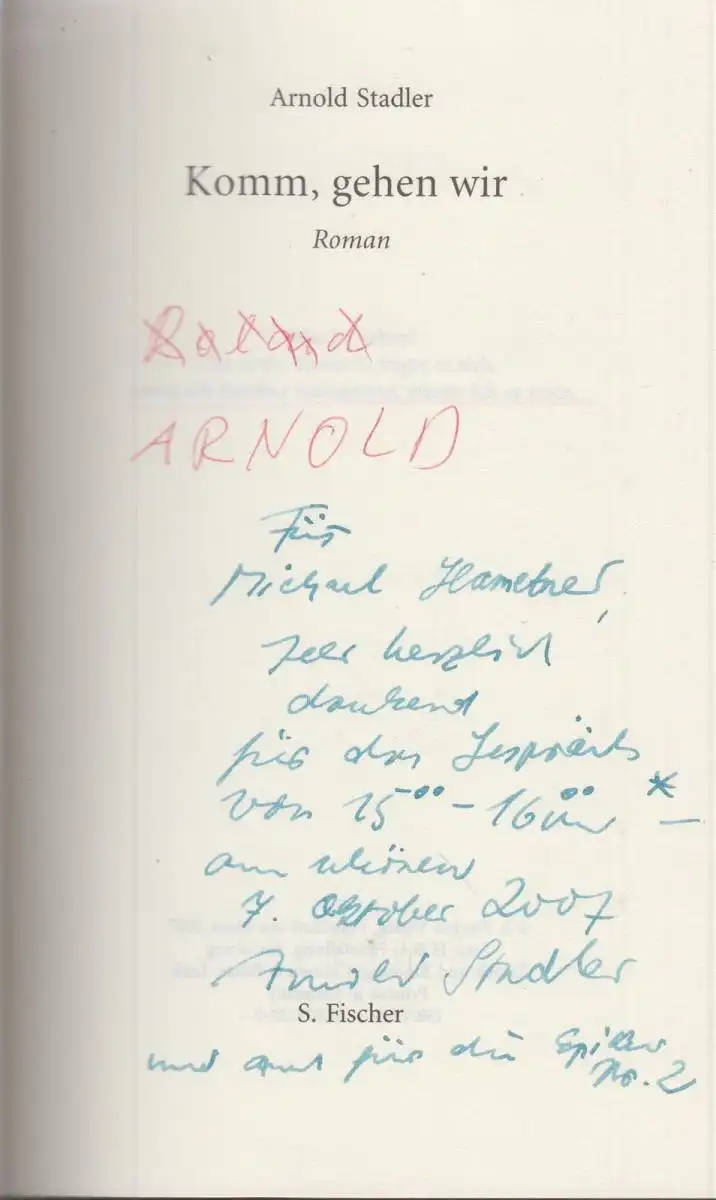 Arnold Stadler
Komm, gehen wir
Roman
Roland
ARNOLD
Für
Michael Hametner,
sehr herzlich
dankend
für das Gespräch
von 15°° – 16°° *
am schönen
7. Oktober 2007
Arnold Stadler
S. Fischer
und auch für die
No. 2